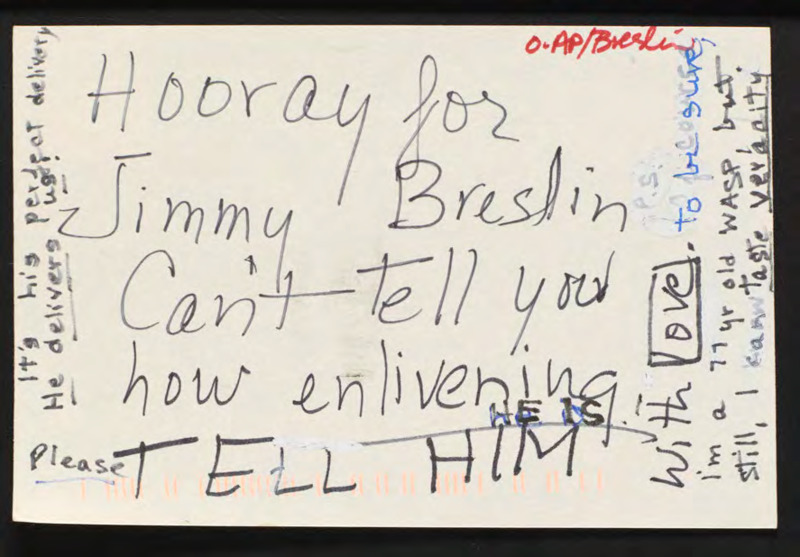 O-AP/Breslin
Hooray for
Jimmy Breslin
Can't tell you
how enlivening
HE IS.
Please TELL HIM
It's his perfect delivery
He delivers us!
With Love. to be sure,
P.S.
i'm a 77 yr old WASP but
still, I can taste veracity